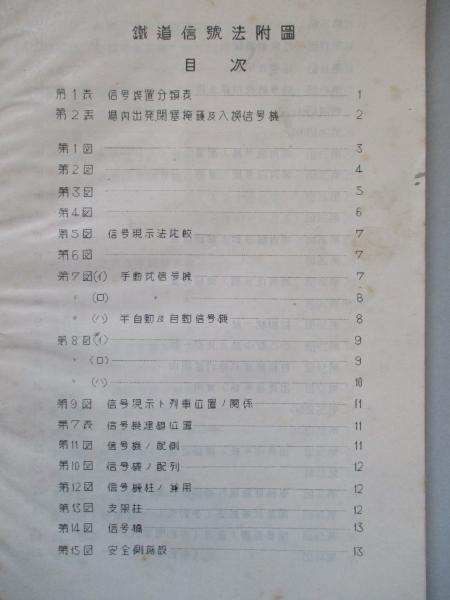 鐵道信號法附圖
目次
第1表 信号装置分類表 1
第2表 場内出発閉塞掩護及入換信号機 2
第1図 3
第2図 4
第3図 5
第4図 6
第5図 信号現示法比較 7
第6図 7
第7図(イ) 手動式信号機 7
〃 (ロ) 〃 8
〃 (ハ) 半自動及自動信号機 8
第8図(イ) 9
〃 (ロ) 9
〃 (ハ) 10
第9図 信号現示ト列車位置ノ関係 11
第7表 信号機建植位置 11
第11図 信号機ノ配列 11
第10図 信号機ノ配列 12
第12図 信号機柱ノ兼用 12
第13図 支架柱 12
第14図 信号橋 13
第15図 安全側施設 13